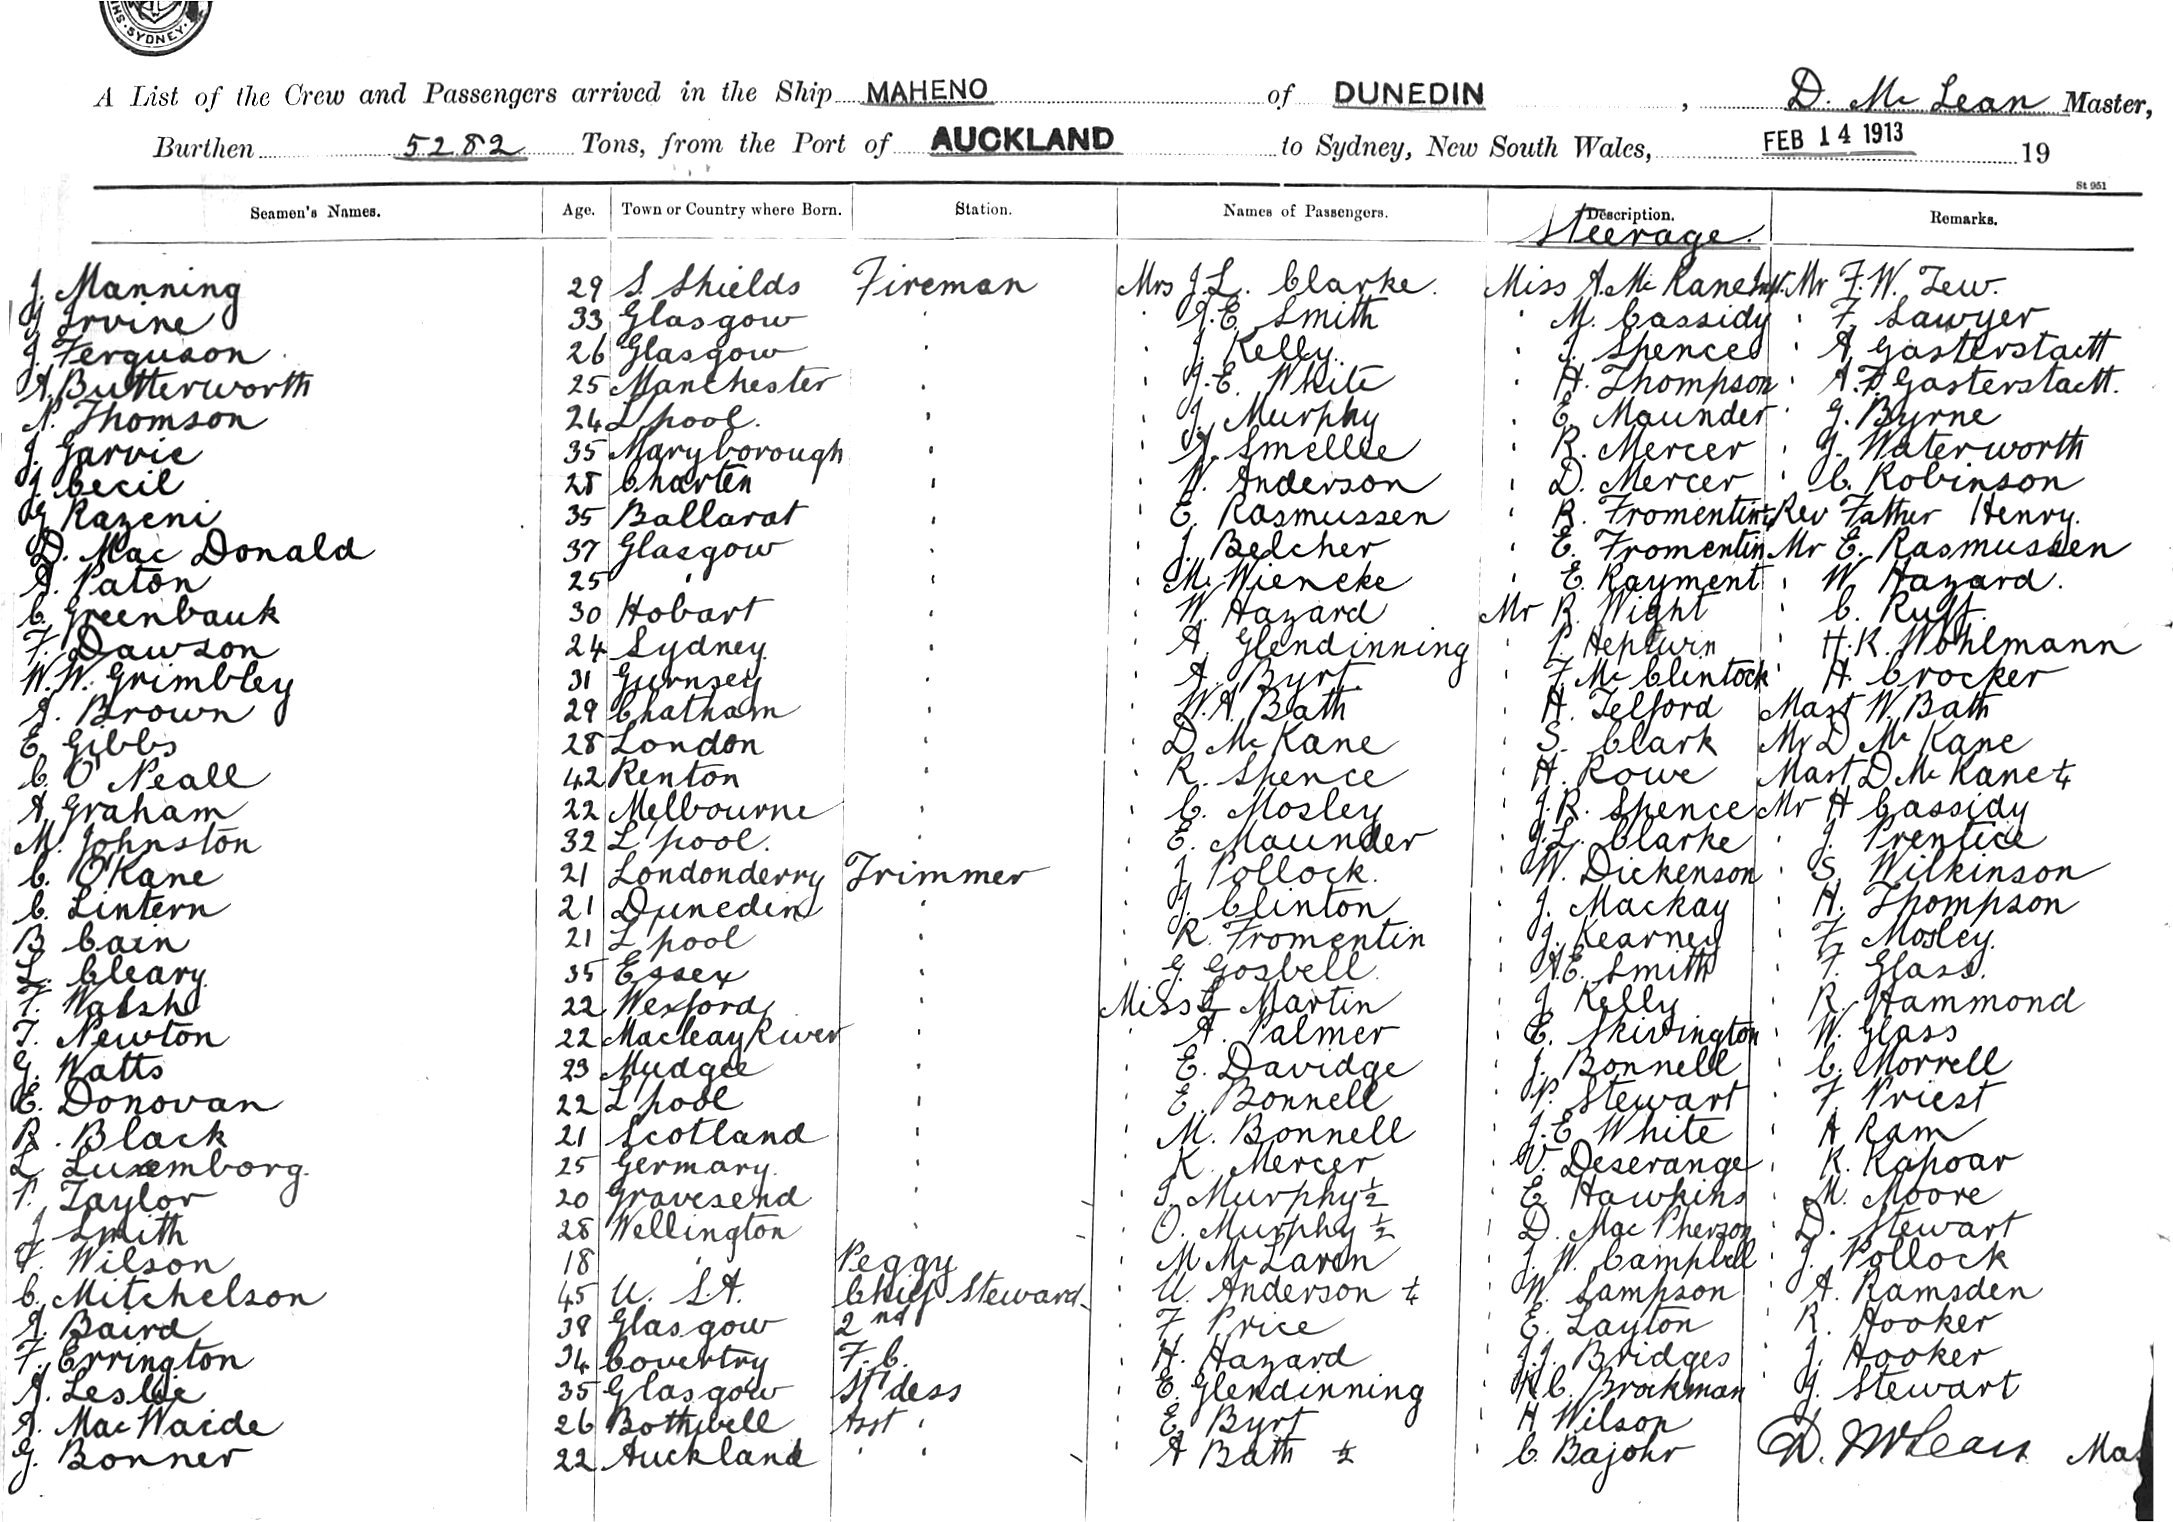 SYDNEY
A List of the Crew and Passengers arrived in the Ship MAHENO of DUNEDIN, D. Mc Lean Master,
Burthen 5282 Tons, from the Port of AUCKLAND to Sydney, New South Wales, FEB 14 1913 19
St 951
Seamen's Names. Age. Town or Country where Born. Station. Names of Passengers. Description. Remarks.
Steerage.
J. Manning 29 S. Shields Fireman Mrs J.L. Clarke. Miss A. Mc Kane Mr F.W. Tew.
J. Irvine 33 Glasgow " " A.E. Smith " M. Cassidy " F. Sawyer
J. Ferguson 26 Glasgow " " J. Kelly. " J. Spence " A. Gasterstactt
A. Butterworth 25 Manchester " " J.E. White " H. Thompson " A.F. Gasterstactt.
N. Thomson 24 L'pool. " " J. Murphy " E. Maunder " G. Byrne
J. Garvie 35 Maryborough " " J. Smellie " R. Mercer " J. Waterworth
J. Cecil 28 Charten " " W. Anderson " D. Mercer " C. Robinson
G. Razeni 35 Ballarat " " E. Rasmussen " R. Fromentin Rev Father Henry.
D. Mac Donald 37 Glasgow " " J. Belcher " E. Fromentin Mr E. Rasmussen
A. Paton 25 " " " M. Wiencke " E. Rayment " W. Hazard.
C. Greenbauk 30 Hobart " " W. Hazard Mr R. Wight " C. Rust.
F. Dawson 24 Sydney " " A. Glendinning " P. Heptwin " H.K. Wohlmann
W.W. Grimbley 31 Gurnsey " " A. Byrt. " F. Mc Clintock " H. Crocker
J. Brown 29 Chatham " " W.A. Bath " H. Telford Mast W. Bath
E. Gibbs 28 London " " D. Mc Kane " S. Clark Mr D Mc Kane
C. O'Neall 42 Renton " " R. Spence " H. Rowe Mast D Mc Kane ¼
A. Graham 22 Melbourne " " C. Mosley " J.R. Spence Mr H Cassidy
M. Johnston 32 L'pool. " " E. Maunder " J.L. Clarke " J. Prentice
C. O'Kane 21 Londonderry Trimmer " J. Pollock. " W. Dickenson " S. Wilkinson
C. Lintern 21 Dunedin " " J. Clinton " J. Mackay " H. Thompson
B. Cain 21 L'pool " " R. Fromentin " J. Kearney " F. Mosley.
L. Cleary 35 Essex " " G. Gosbell " A.E. Smith " F. Glass.
F. Walsh 22 Wexford " Miss L Martin " J. Kelly " R. Hammond
T. Newton 22 Macleay River " " A. Palmer " E. Skivington " W. Glass
G. Watts 23 Mudgee " " E. Davidge " J. Bonnell " C. Morrell
E. Donovan 22 L'pool " " E. Bonnell " P. Stewart " F. Priest
R. Black 21 Scotland " " M. Bonnell " J.E. White " A Ram
L Luxemborg. 25 Germany. " " K. Mercer " V. Deserange " R. Kapoar
P. Taylor 20 Gravesend " " T. Murphy ½ " E Hawkins " M. Moore
J Smith 28 Wellington " " O. Murphy ½ " D. Mac Pherson " D. Stewart
F. Wilson 18 " Peggy " M Mc Laren " J.W. Campbell " J. Pollock
C. Mitchelson 45 U. S.A. Chief Steward " U. Anderson ¼ " W. Sampson " A. Ramsden
J. Baird 38 Glasgow 2nd " " F Price " E. Layton " R. Hooker
F. Errington 34 Coventry F.C. " H. Hazard " J.J. Bridges " J. Hooker
J. Leslie 35 Glasgow St'dess " E. Glendinning " K.C. Brockman " G. Stewart
A. Mac Waide 26 Bothwell Asst " " E. Byrt " H Wilson
G. Bonner 22 Auckland " " " A Bath ½ " C. Bajohr D. McLean Mas